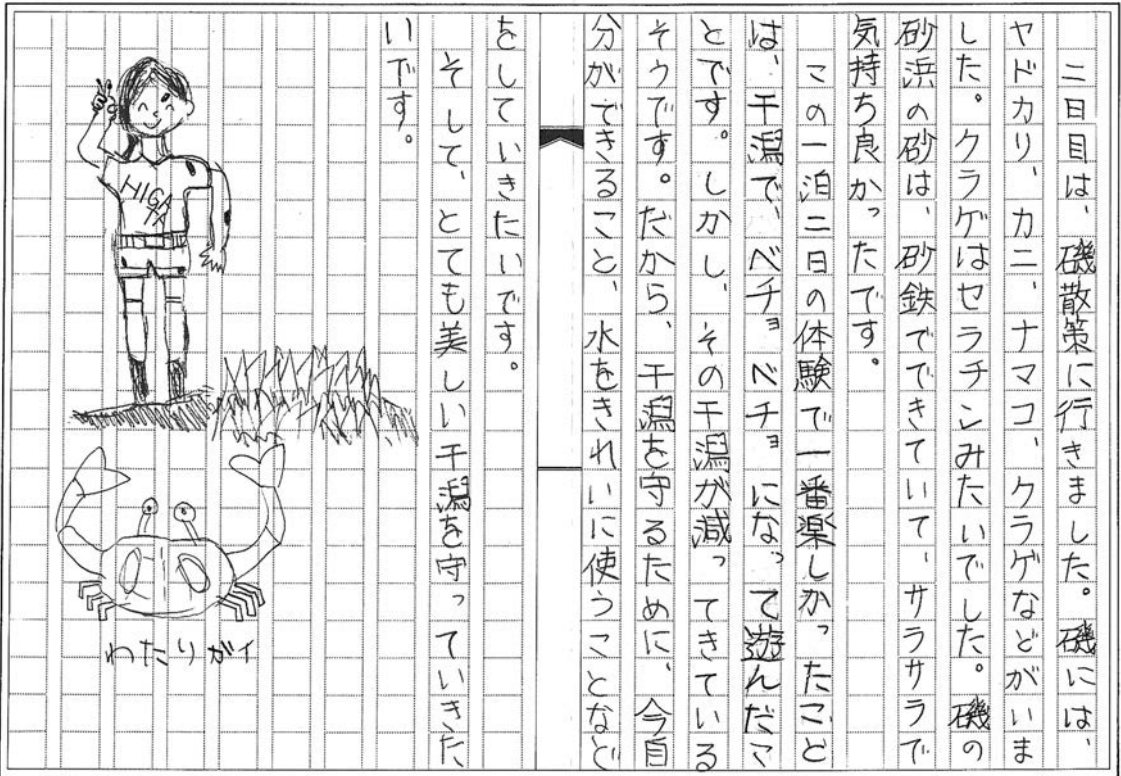 二日目は、磯散策に行きました。磯には、
ヤドカリ、カニ、ナマコ、クラゲなどがいま
した。クラゲはセラチンみたいでした。磯の
砂浜の砂は、砂鉄でできていて、サラサラで
気持ち良かったです。
この一泊二日の体験で一番楽しかったこと
は、干潟で、ベチョベチョになって遊んだこ
とです。しかし、その干潟が減ってきている
そうです。だから、干潟を守るために、今自
分ができること、水をきれいに使うことなど
をしていきたいです。
そして、とても美しい干潟を守っていきた
いです。
HIGATA
わたりガイ